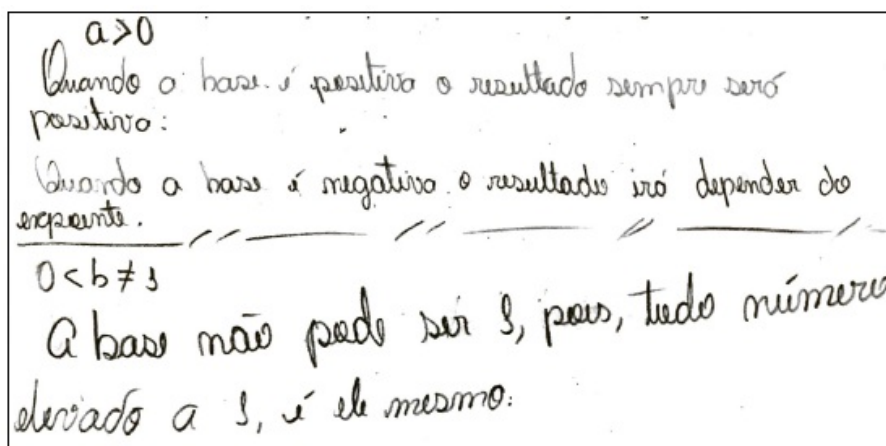 a>0
Quando a base é positiva o resultado sempre será
positivo:
Quando a base é negativa o resultado irá depender do
expoente.
0<b≠1
A base não pode ser 1, pois, todo número
elevado a 1, é ele mesmo.